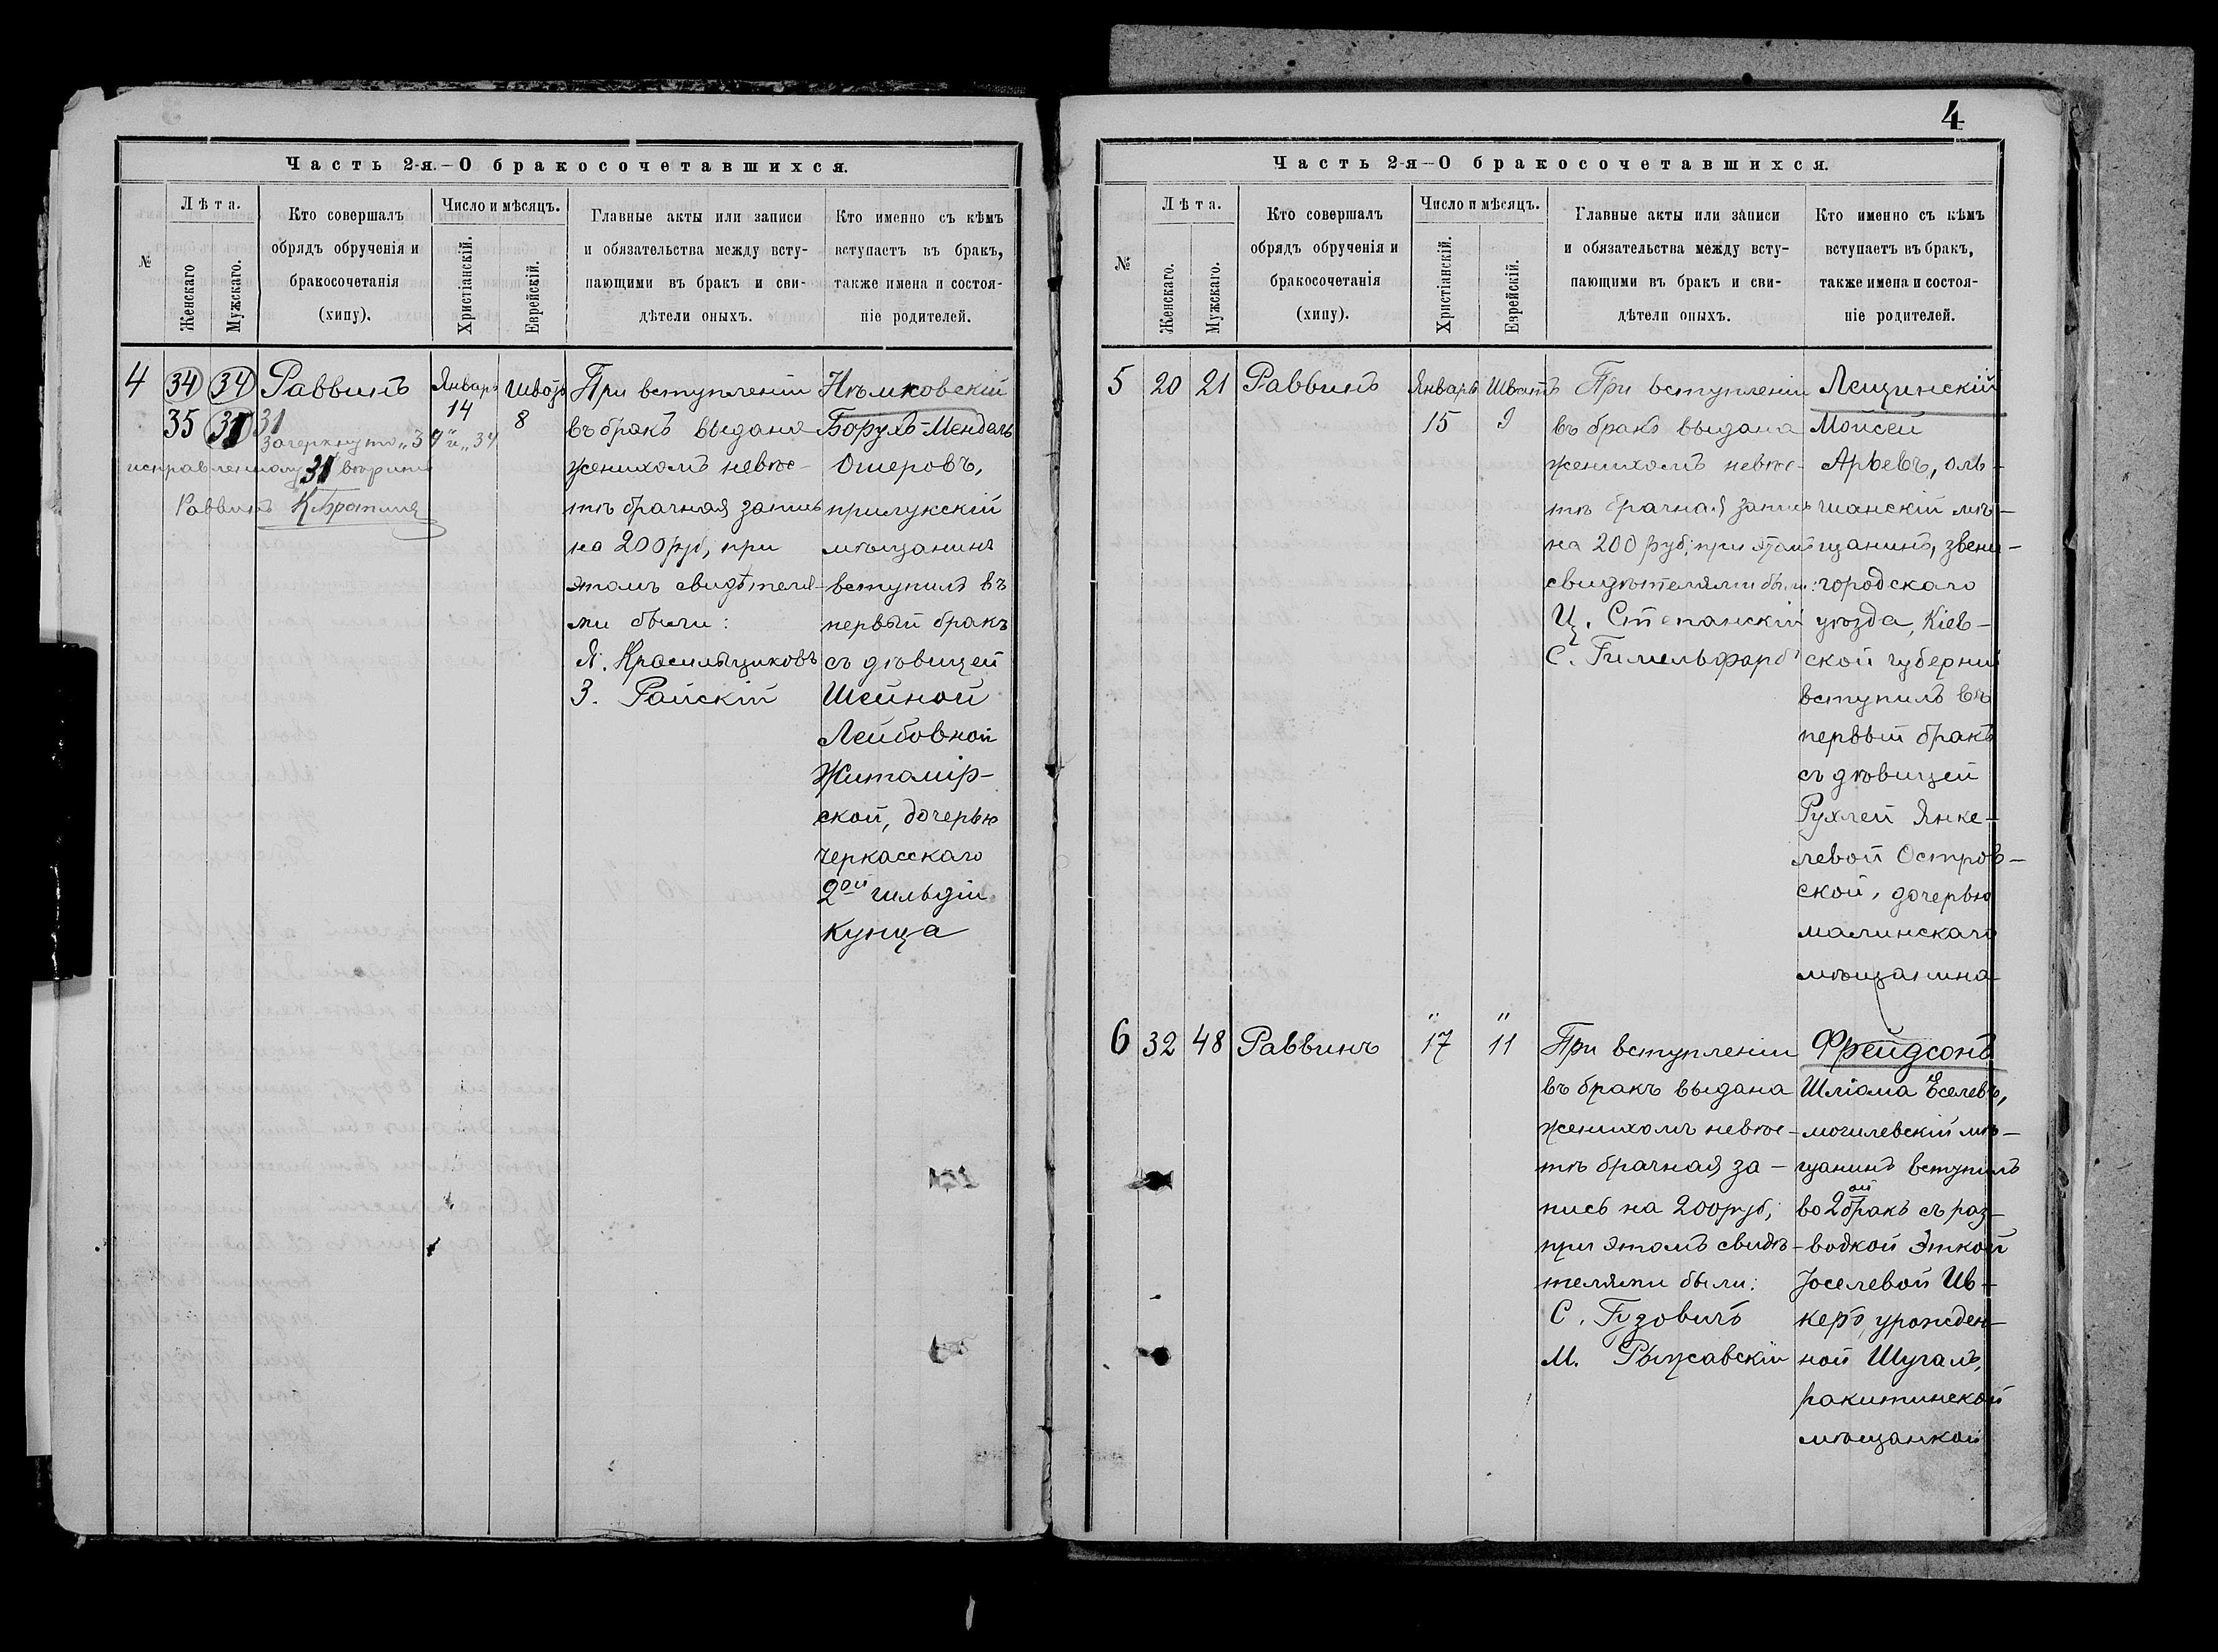 Часть 2-я.—О бракосочетавшихся.
№
Лѣта.
Женскаго
Мужскаго.
Кто совершалъ
обрядъ обрученія и
бракосочетанія
(хипу).
Число и мѣсяцъ.
Христіанскій.
Еврейскій.
Главные акты или записи
и обязательства между всту-
пающими въ бракъ и сви-
дѣтели оныхъ.
Кто именно съ кѣмъ
вступаетъ въ бракъ,
также имена и состоя-
ніе родителей.
4 34 34 Раввинъ Январь Шватъ
35 31 31 14 8
зачеркнуто „34“ и „34
исправленному 31 вѣрить
Раввинъ
При вступленіи
въ бракъ выдана
женихомъ невѣс-
тѣ брачная запись
на 200 руб, при
этомъ свидѣтеля-
ми были:
Я. Красильщиковъ
З. Райскій
Нѣмковскій
Борухъ-Мендель
Ошеровъ,
прилукскій
мѣщанинъ
вступилъ въ
первый бракъ
съ дѣвицей
Шейной
Лейбовной
Житомір-
ской, дочерью
черкасскаго
2ой гильдіи
купца
4
Часть 2-я—О бракосочетавшихся.
№
Лѣта.
Женскаго.
Мужскаго.
Кто совершалъ
обрядъ обрученія и
бракосочетанія
(хипу).
Число и мѣсяцъ.
Христіанскій.
Еврейскій.
Главные акты или записи
и обязательства между всту-
пающими въ бракъ и сви-
дѣтели оныхъ.
Кто именно съ кѣмъ
вступаетъ въ бракъ,
также имена и состоя-
ніе родителей.
5 20 21 Раввинъ Январь Шватъ
15 9
При вступленіи
въ бракъ выдана
женихомъ невѣс-
тѣ брачная запись
на 200 руб, при этомъ
свидѣтелями были:
Ц. Степанскій
С. Гимельфарбъ
Лещинскій
Мойсей
Арьевъ, оль-
шанскій мѣ-
щанинъ, звени-
городскаго
уѣзда, Кіев-
ской губерніи
вступилъ въ
первый бракъ
съ дѣвицей
Рухлей Янке-
левой Остров-
ской, дочерью
малинскаго
мѣщанина
6 32 48 Раввинъ " 17 " 11
При вступленіи
въ бракъ выдана
женихомъ невѣс-
тѣ брачная за-
пись на 200 руб,
при этомъ свидѣ-
телями были:
С. Гузовичъ
М. Рыжавскій
Фрейдсонъ
Шліома Еселевъ,
могилевскій мѣ-
щанинъ вступилъ
во 2ой бракъ съ раз-
водкой Эткой
Іоселевой Ив-
керъ, урожден-
ной Шугалъ,
ракитинской
мѣщанкой